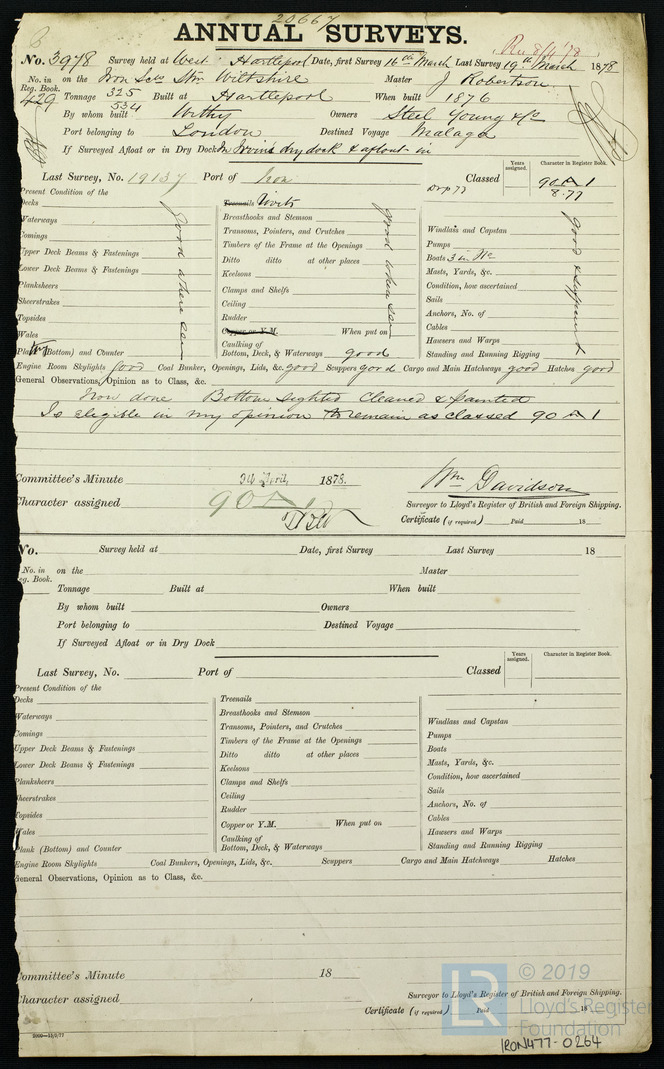 20667
ANNUAL SURVEYS.
Rec 8/4/78
No. 3978 Survey held at West Hartlepool Date, first Survey 16th March Last Survey 19th March 1878
No. in Reg. Book. 429 on the Iron Scw Stm Wiltshire Master J Robertson
Tonnage 325 534 Built at Hartlepool When built 1876
By whom built Withy Owners Steel Young & Co
Port belonging to London Destined Voyage Malaga
If Surveyed Afloat or in Dry Dock In Irvin's dry dock & afloat in
Last Survey, No. 19137 Port of Lon Classed Years assigned. Character in Register Book. 90 A 1 8.77
Present Condition of the
Decks
Waterways
Comings
Upper Deck Beams & Fastenings
Lower Deck Beams & Fastenings
Planksheers
Sheerstrakes
Topsides
Wales
Plating (Bottom) and Counter
good where seen
Treenails Rivets
Breasthooks and Stemson
Transoms, Pointers, and Crutches
Timbers of the Frame at the Openings
Ditto ditto at other places
Keelsons
Clamps and Shelfs
Ceiling
Rudder
Copper or Y.M. When put on
Caulking of Bottom, Deck, & Waterways good
good where seen
Windlass and Capstan
Pumps
Boats 3 in No
Masts, Yards, &c.
Condition, how ascertained
Sails
Anchors, No. of
Cables
Hawsers and Warps
Standing and Running Rigging
good & sufficient
Engine Room Skylights good Coal Bunker, Openings, Lids, &c. good Scuppers good Cargo and Main Hatchways good Hatches good
General Observations, Opinion as to Class, &c.
Now done Bottom sighted cleaned & painted
Is eligible in my opinion to remain as classed 90 A 1
Committee's Minute April, 1878.
Character assigned 90 A 1
Wm Davidson
Surveyor to Lloyd's Register of British and Foreign Shipping.
Certificate (if required) Paid 18
No. Survey held at Date, first Survey Last Survey 18
No. in Reg. Book. on the Master
Tonnage Built at When built
By whom built Owners
Port belonging to Destined Voyage
If Surveyed Afloat or in Dry Dock
Last Survey, No. Port of Classed Years assigned. Character in Register Book.
Present Condition of the
Decks
Waterways
Comings
Upper Deck Beams & Fastenings
Lower Deck Beams & Fastenings
Planksheers
Sheerstrakes
Topsides
Wales
Plank (Bottom) and Counter
Treenails
Breasthooks and Stemson
Transoms, Pointers, and Crutches
Timbers of the Frame at the Openings
Ditto ditto at other places
Keelsons
Clamps and Shelfs
Ceiling
Rudder
Copper or Y.M. When put on
Caulking of Bottom, Deck, & Waterways
Windlass and Capstan
Pumps
Boats
Masts, Yards, &c.
Condition, how ascertained
Sails
Anchors, No. of
Cables
Hawsers and Warps
Standing and Running Rigging
Engine Room Skylights Coal Bunkers, Openings, Lids, &c. Scuppers Cargo and Main Hatchways Hatches
General Observations, Opinion as to Class, &c.
Committee's Minute 18
Character assigned
Surveyor to Lloyd's Register of British and Foreign Shipping.
Certificate (if required) Paid 18
LR © 2019
Lloyd's Register
Foundation
IRON477-0264